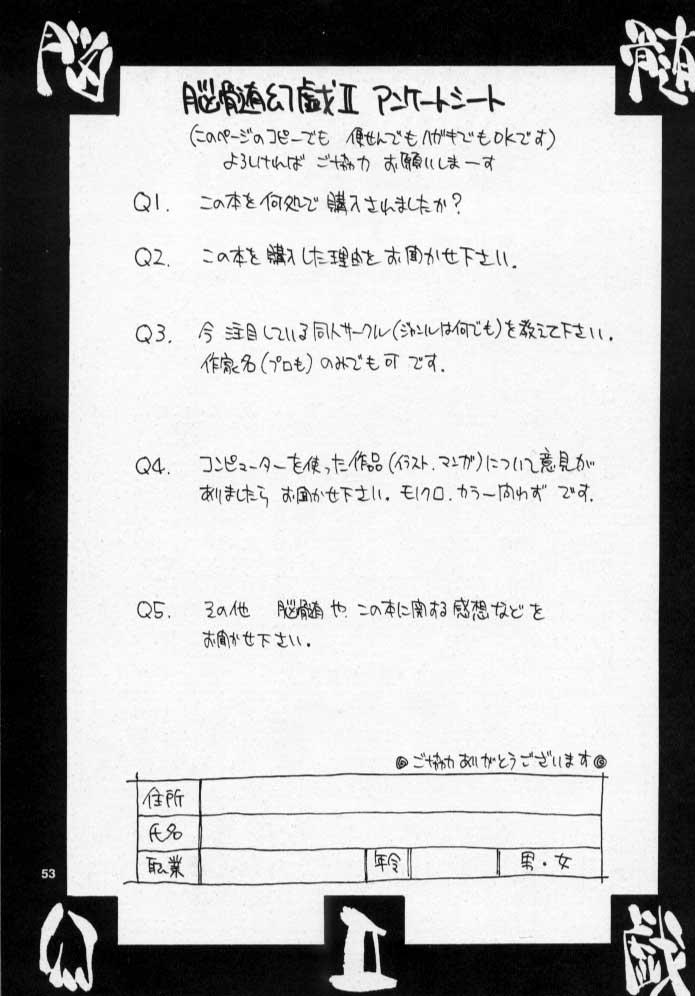 脳 髄
脳髄幻戯II アンケートシート
(このページのコピーでも 便せんでもハガキでもOKです)
よろしければ ご協力 お願いしまーす
Q1. この本を何処で購入されましたか?
Q2. この本を購入した理由をお聞かせ下さい.
Q3. 今 注目している同人サークル(ジャンルは何でも)を教えて下さい.
作家名(プロも)のみでも可 です.
Q4. コンピューターを使った作品(イラスト.マンガ)について意見が
ありましたら お聞かせ下さい. モノクロ.カラー問わず です.
Q5. その他 脳髄や.この本に関する感想などを
お聞かせ下さい.
◎ご協力ありがとうございます◎
住所
氏名
職業 年令 男・女
53
幻 II 戯